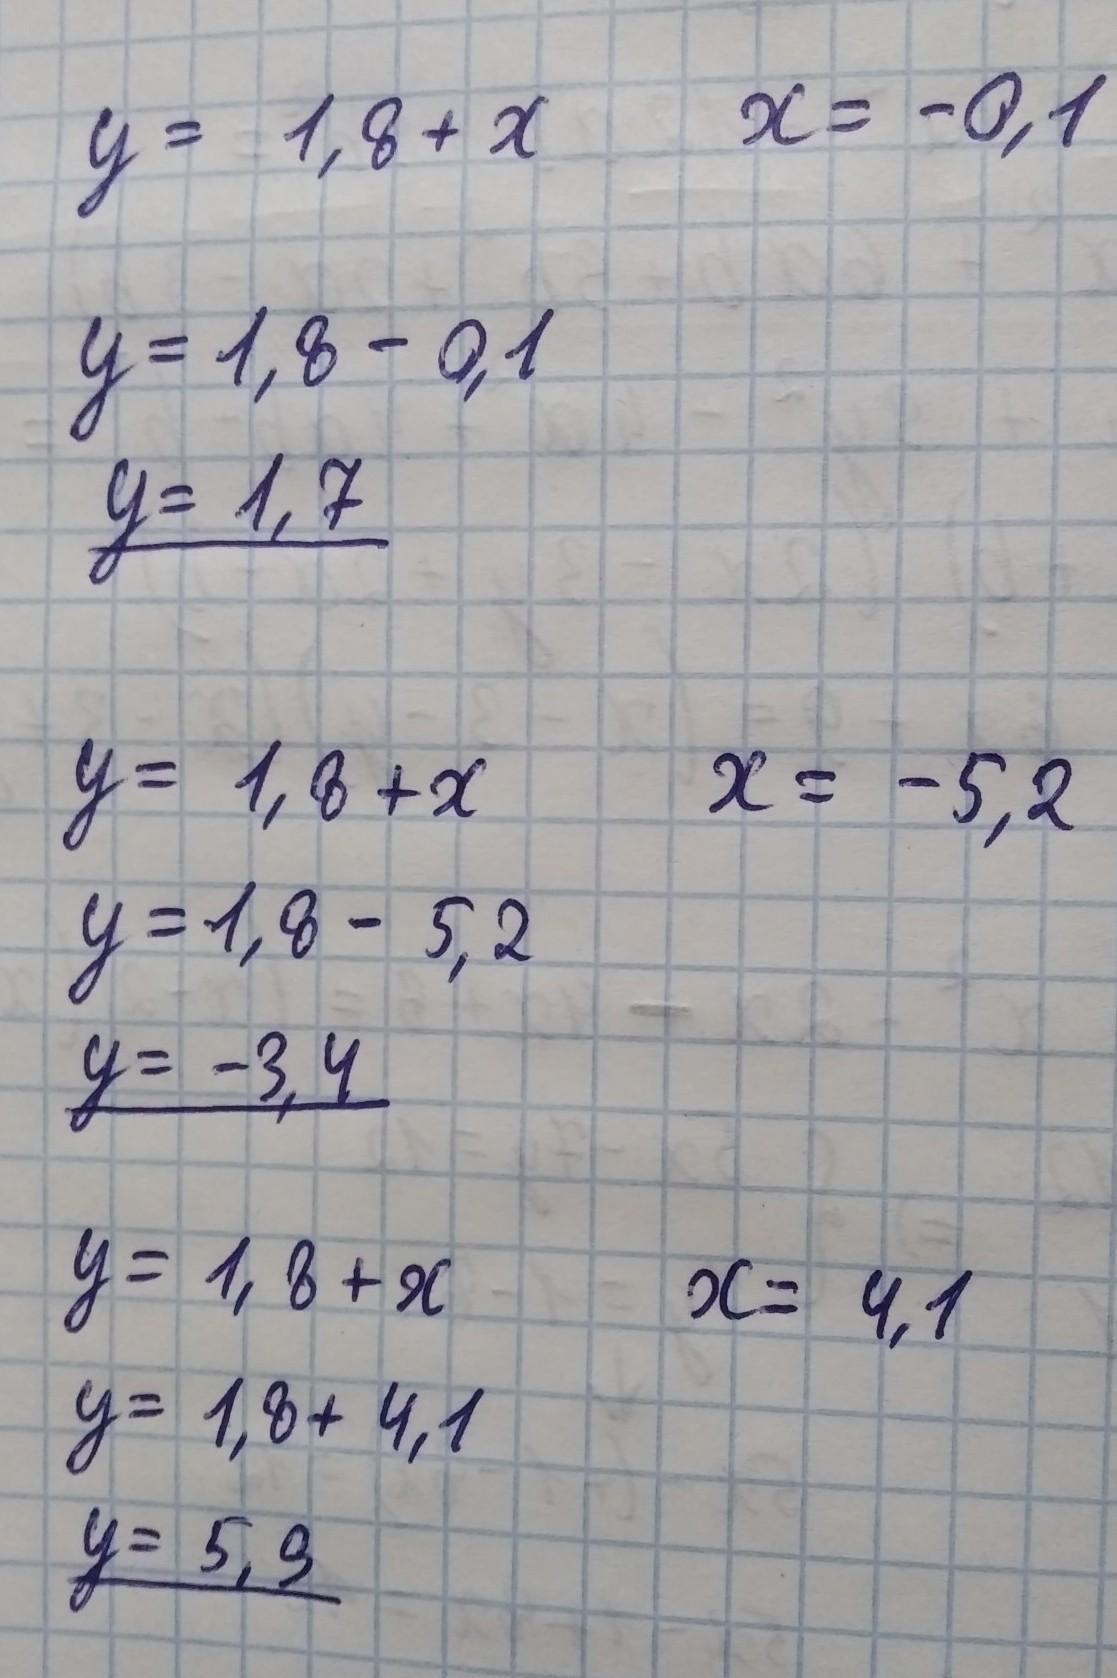 y = 1,8 + x x = -0,1
y = 1,8 - 0,1
y = 1,7
y = 1,8 + x x = -5,2
y = 1,8 - 5,2
y = -3,4
y = 1,8 + x x = 4,1
y = 1,8 + 4,1
y = 5,9